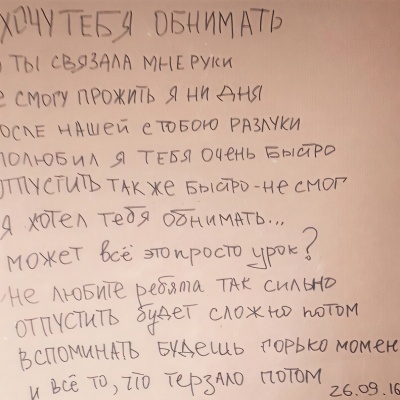 ХОЧУ ТЕБЯ ОБНИМАТЬ
ТЫ СВЯЗАЛА МНЕ РУКИ
СМОГУ ПРОЖИТЬ Я НИ ДНЯ
ОСЛЕ НАШЕЙ С ТОБОЮ РАЗЛУКИ
ПОЛЮБИЛ Я ТЕБЯ ОЧЕНЬ БЫСТРО
ОТПУСТИТЬ ТАК ЖЕ БЫСТРО-НЕ СМОГ
Я ХОТЕЛ ТЕБЯ ОБНИМАТЬ...
МОЖЕТ ВСЁ ЭТО ПРОСТО УРОК?
НЕ ЛЮБИТЕ РЕБЯТА ТАК СИЛЬНО
ОТПУСТИТЬ БУДЕТ СЛОЖНО ПОТОМ
ВСПОМИНАТЬ БУДЕШЬ ГОРЬКО МОМЕН
И ВСЁ ТО, ЧТО ТЕРЗАЛО ПОТОМ
26.09.16